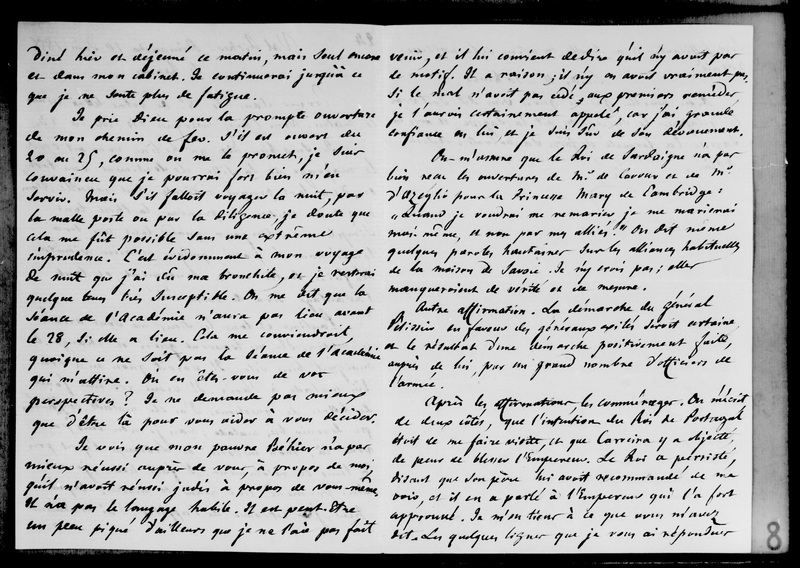 diné hier et déjeuné ce matin, mais seul encore
et dans mon cabinet. Je continuerai jusqu'à ce
que je ne sente plus de fatigue.
Je prie Dieu pour la prompte ouverture
de mon chemin de fer. S'il est ouvert du
20 au 25, comme on me le promet, je suis
convaincu que je pourrai fort bien m'en
servir. Mais s'il falloit voyager la nuit, par
la malle poste ou par la diligence, je doute que
cela me fût possible sans une extrême
imprudence. C'est évidemment à mon voyage
de nuit que j'ai dû ma bronchite, et je resterai
quelque tems très susceptible. On me dit que la
séance de l'Académie n'aura pas lieu avant
le 28, si elle a lieu. Cela me conviendroit,
quoique ce ne soit pas la séance de l'académie
qui m'attire. Où en êtes-vous de vos
perspectives? Je ne demande pas mieux
que d'être là pour vous aider à vous décider.
Je vois que mon pauvre Béhier n'a pas
mieux réussi auprès de vous, à propos de moi,
qu'il n'avoit réussi jadis à propos de vous-même.
Il n'a pas le langage habile. Il est peut-être
un peu piqué d'ailleurs que je ne l'aie pas fait
venir, et il lui convient de dire qu'il n'y avoit pas
de motif. Il a raison; il n'y en avoit vraiment pas.
Si le mal n'avoit pas cédé aux premiers remèdes
je l'aurois certainement appelé, car j'ai grande
confiance en lui et je suis sûr de son dévouement.
On m'assure que le Roi de Sardaigne n'a pas
bien reçu les ouvertures de Mr de Cavour et de Mr
d'Azeglio pour la Princesse Mary de Cambridge:
"Quand je voudrai me remarier, je me marierai
moi-même, et non par mes alliés." On dit même
quelques paroles hautaines sur les alliances habituelles
de la maison de Savoie. Je n'y crois pas; elles
manqueroient de vérité et de mesure.
Autre affirmation. La démarche du général
Pélissier en faveur des généraux exilés seroit certaine,
et le résultat d'une démarche positivement faite,
auprès de lui, par un grand nombre d'officiers de
l'armée.
Après les affirmations les commérages. On m'écrit
de deux côtés, que l'intention du Roi de Portugal
étoit de me faire visite, et que Carreira y a objecté,
de peur de blesser l'Empereur. Le Roi a persisté,
disant que son père lui avoit recommandé de me
voir, et il en a parlé à l'Empereur qui l'a fort
approuvé. Je m'en tiens à ce que vous m'avez
dit. Les quelques lignes que je vous ai répondues
8